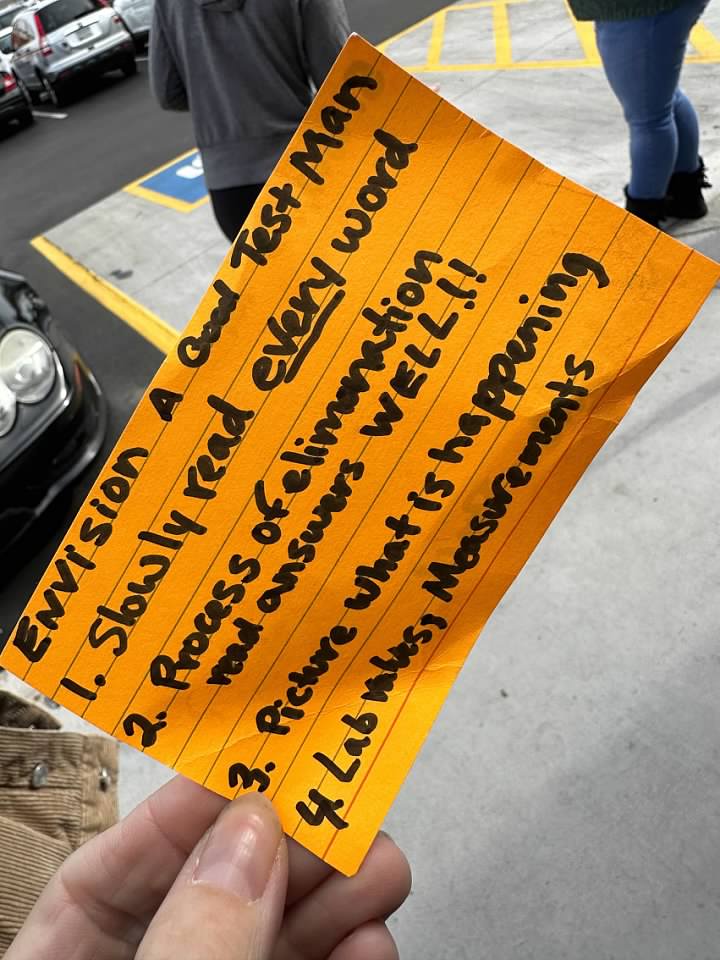 Envision A Good Test Man
1. Slowly read every word
2. Process of elimanation
read answers WELL!!
3. Picture what is happening
4. Lab values, Measurements